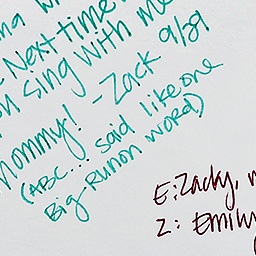 Next time
sing with me
Mommy! - Zack 9/29
(ABC... said like one
Big-Runon word)
E: Zacky,
Z: Emily